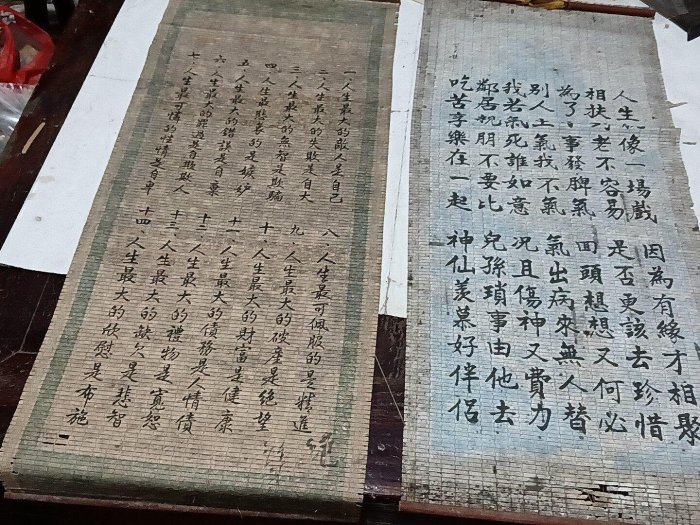 一、人生最大的敵人是自己
二、人生最大的失敗是自大
三、人生最大的無智是欺騙
四、人生最悲哀的是嫉妒
五、人生最大的錯誤是自棄
六、人生最大的罪過是自欺欺人
七、人生最可憐的性情是自卑
八、人生最可佩服的是精進
九、人生最大的破產是絕望
十、人生最大的財富是健康
十一 人生最大的債務是人情債
十二 人生最大的禮物是寬恕
十三 人生最大的缺欠是悲智
十四 人生最大的欣慰是布施
人生像一場戲
因為有緣才相聚
相扶老不容易
是否更該去珍惜
為了事發脾氣
回頭想想又何必
別人上氣我不氣
氣出病來無人替
我若氣死誰如意
況且傷神又費力
鄰居朋不要比
兒孫瑣事由他去
吃苦享樂在一起
神仙羨慕好伴侶